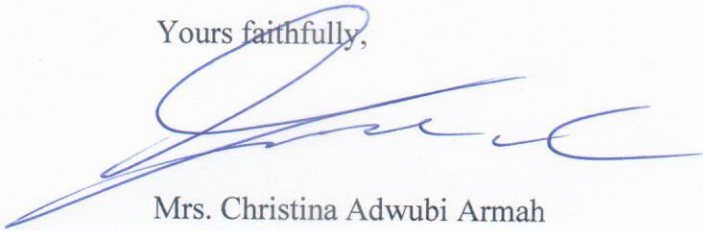 Yours faithfully,
Mrs. Christina Adwubi Armah